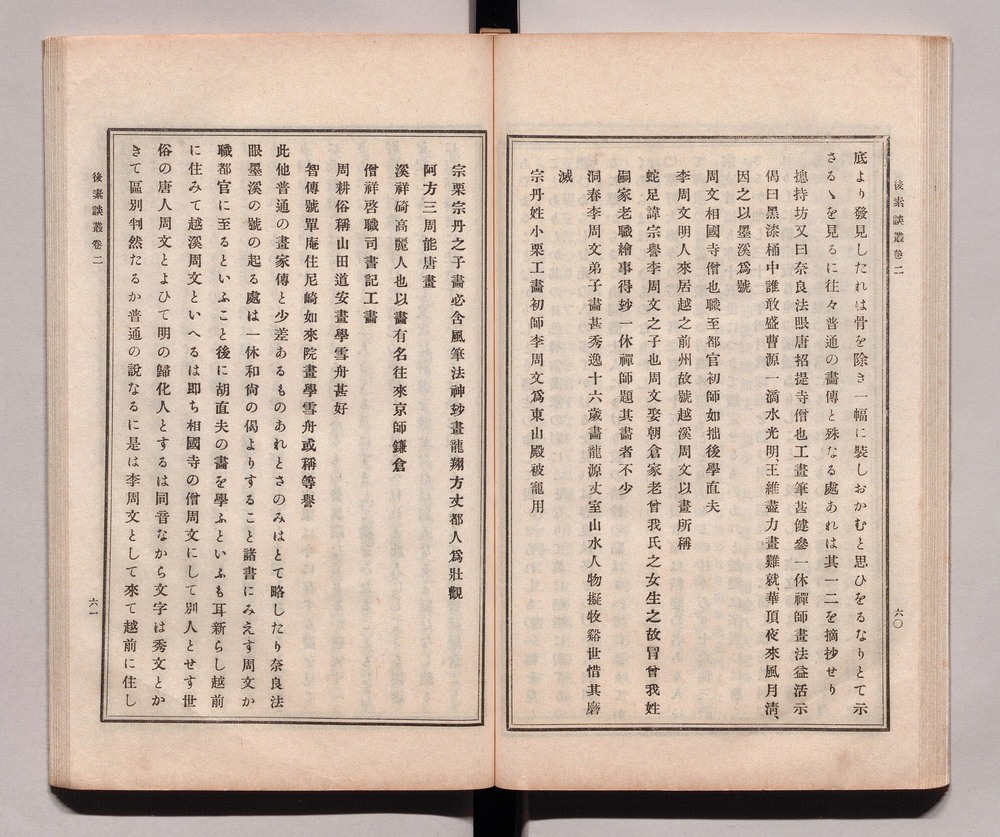 後素談叢卷二
六〇
底より發見したれは骨を除き一幅に裝しおかむと思ひをるなりとて示
さるゝを見るに往々普通の畵傳と殊なる處あれは其一二を摘抄せり
摠持坊又曰奈良法眼唐招提寺僧也工畫筆甚健參一休禪師畫法益活示
偈曰黑漆桶中誰敢盛曹源一滴水光明、王維盡力畫難就、華頂夜來風月淸、
因之以墨溪爲號
周文相國寺僧也職至都官初師如拙後學直夫
李周文明人來居越之前州故號越溪周文以畫所稱
蛇足諱宗譽李周文之子也周文娶朝倉家老曾我氏之女生之故冒曾我姓
嗣家老職繪事得玅一休禪師題其畵者不少
洞春李周文弟子畵甚秀逸十六歲畵龍源𠀋室山水人物擬牧谿世惜其磨
滅
宗丹姓小栗工畵初師李周文爲東山殿被寵用
宗栗宗丹之子畵必含風筆法神玅畫龍翔方𠀋都人爲壯觀
阿方三周能唐畫
溪祥碕高麗人也以畵有名往來京師鎌倉
僧祥啓職司書記工畵
周耕俗稱山田道安畫學雪舟甚好
智傳號單庵住尼崎如來院畫學雪舟或稱等譽
此他普通の畫家傳と少差あるものあれとさのみはとて略したり奈良法
眼墨溪の號の起る處は一休和尙の偈よりすること諸書にみえす周文か
職都官に至るといふこと後に胡直夫の畵を學ふといふも耳新らし越前
に住みて越溪周文といへるは即ち相國寺の僧周文にして別人とせす世
俗の唐人周文とよひて明の歸化人とするは同音なから文字は秀文とか
きて區別判然たるか普通の說なるに是は李周文として來て越前に住し
後素談叢卷二
六一